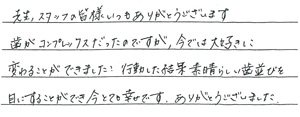 先生、スタッフの皆様いつもありがとうございます
歯がコンプレックスだったのですが、今では大好きに
変わることができました！行動した結果素晴らしい歯並びを
目にすることができ今とても幸せです。ありがとうございました。